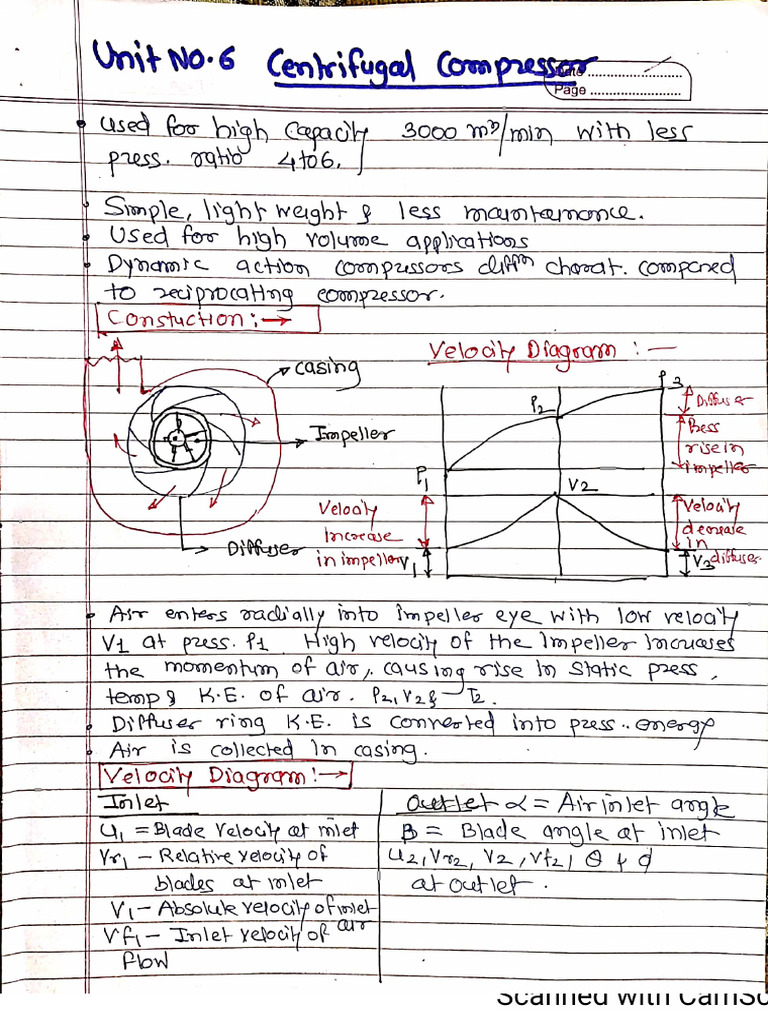 Unit No. 6 Centrifugal Compressor
Page
• Used for high capacity 3000 m³/min with less
press. ratio 4 to 6.
• Simple, light weight & less maintamance.
• Used for high volume applications
• Dynamic action compressors diffn charat. compared
to reciprocating compressor.
Constuction :→
Velocity Diagram :-
casing
Impeller
Diffuser
P1
P2
P3
Diffuser
rise in
impeller
V2
Velocity
Increase
in impeller
V1
Velocity
decrease
in
diffuser
V3
• Air enters radially into impeller eye with low velocity
V1 at press. P1. High velocity of the Impeller Increases
the momentum of air, causing rise in static press,
temp & K.E. of air. P2, V2 & T2.
• Diffuser ring K.E. is converted into press.. energy
• Air is collected In casing.
Velocity Diagram :→
Inlet
U1 = Blade velocity at inlet
Vr1 - Relative velocity of
blades at inlet
V1 - Absolute velocity of inlet
Vf1 - Inlet velocity of air
flow
Outlet α = Air inlet angle
B = Blade angle at inlet
U2, Vr2, V2, Vf2, θ & ɸ
at outlet.
Scanned with CamSc